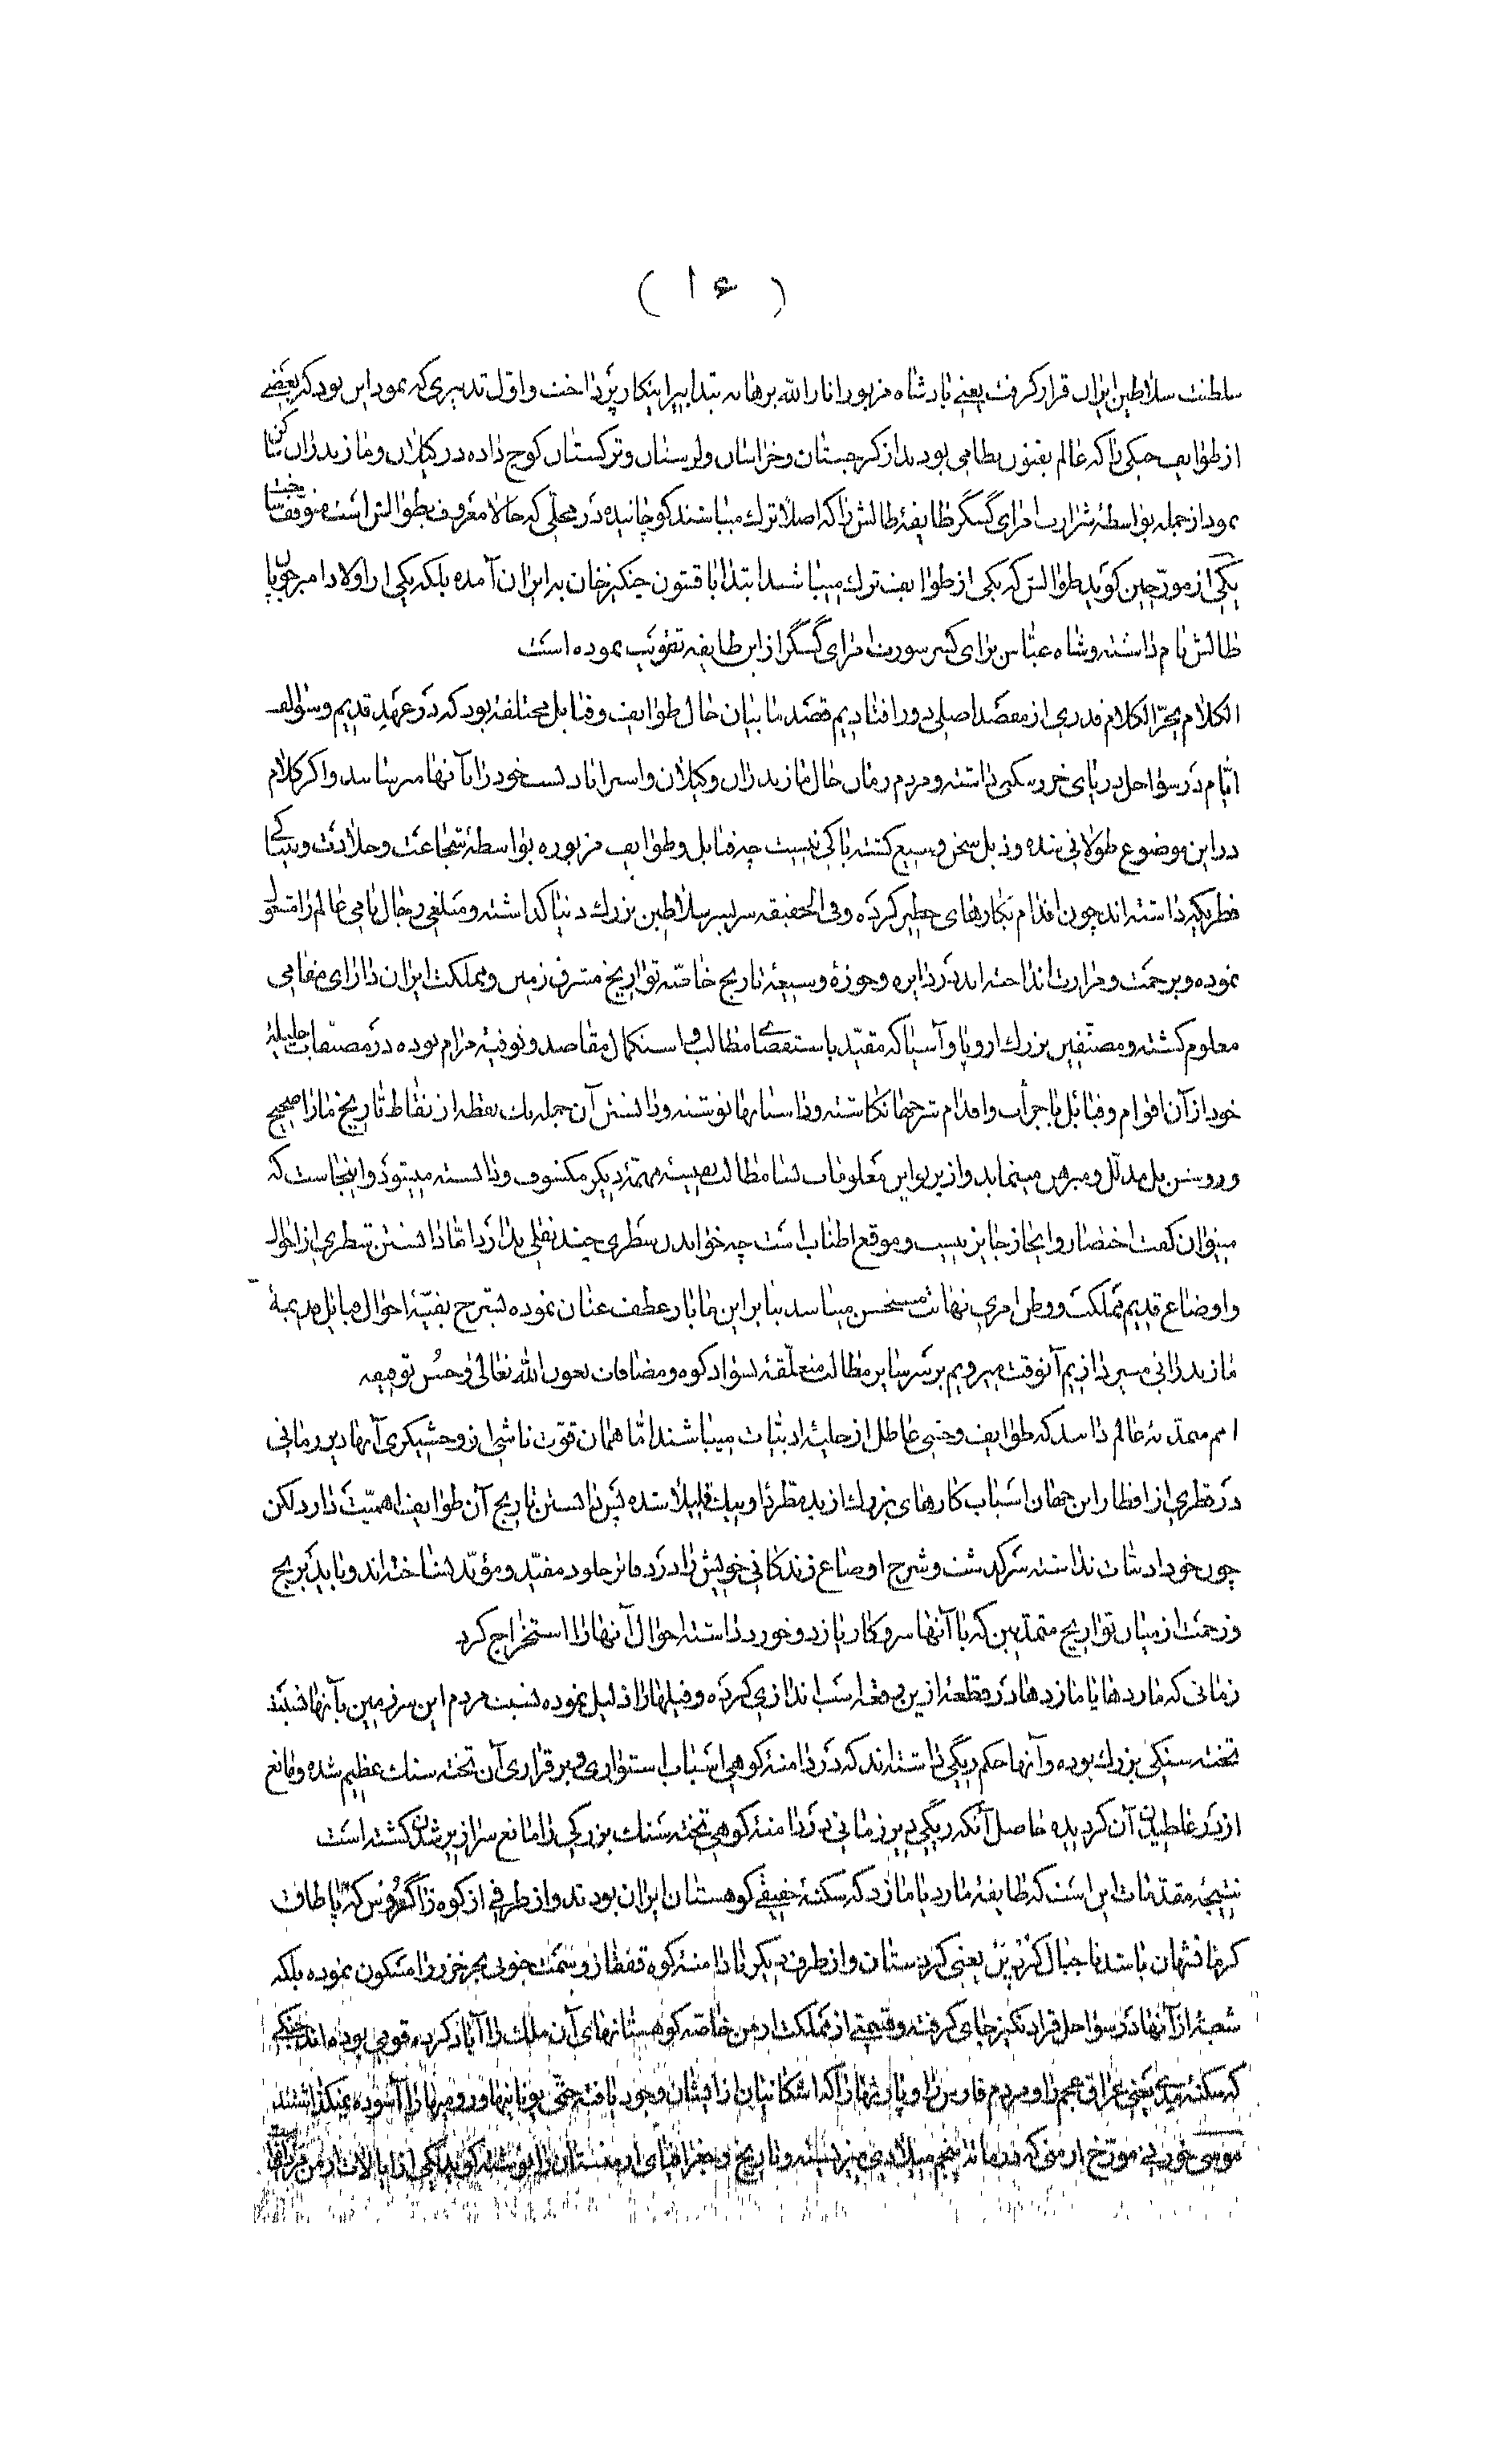 ( ۱۶ )
سلطنت سلاطین ایران قرار گرفت یعنی پادشاه مزبور انار الله برهانه بتدابیر اینکار پرداخت و اوّل تدبیری که نمود این بود که بعضی
از طوایف جنگی را که عالم بفنون نظامی بودند از گرجستان و خراسان و لرستان و ترکستان کوچ داده در گیلان و مازندران
نمود از جمله بواسطهٔ شرارت امرای گسگر طایفهٔ طالش را که اصلاً ترک میباشند کوچانیده در محلّی که حالا معروف بطوالش است متوقف ساخت
یکی از مورّخین گوید طوالش که یکی از طوایف ترک میباشد ابتدا با قشون چنگیزخان به ایران آمده بلکه یکی از اولاد امیر چوپان
طالش نام داشته و شاه عبّاس برای کسر سورت امرای گسگر از این طایفه تقویت نموده است
الکلام یجرّ الکلام قدری از مقصد اصلی دور افتادیم قصد ما بیان حال طوایف و قبایل مختلفه بود که در عهد قدیم و سوالف
ایّام در سواحل دریای خزر سکنی داشته و مردم زمان حال مازندران و گیلان و استراباد نسب خود را بآنها میرسانند و اگر کلام
در این موضوع طولانی شده و ذیل سخن وسیع گشته باکی نیست چه قبایل و طوایف مزبوره بواسطهٔ شجاعت و جلادت و بیباکی
فطری که داشته‌اند چون اقدام بکارهای خطیر کرده و فی الحقیقه سربسر سلاطین بزرگ دنیا گذاشته و مبلغی رجال نامی عالم را مشغول
نموده و بزحمت و مرارت انداخته‌اند در دایره و حوزهٔ وسیعهٔ تاریخ خاصّه تواریخ مشرق زمین و مملکت ایران دارای مقامی
معلوم گشته و مصنّفین بزرگ اروپا و آسیا که مقیّد باستقصای مطالب و استکمال مقاصد و توفیهٔ مرام بوده در مصنّفات جلیلهٔ
خود از آن اقوام و قبائل با جرأت و اقدام شرحها نگاشته و داستانها نوشته و دانستن آن جمله یک نقطه از نقاط تاریخ ما را صحیح
و روشن بل مدلّل و مبرهن مینماید و از پرتو این معلومات بسا مطالب نفیسهٔ مهمّهٔ دیگر مکشوف و دانسته میشود و اینجاست که
میتوان گفت اختصار و ایجاز جایز نیست و موقع اطناب است چه خواندن سطری چند نقلی ندارد امّا دانستن شطری از احوال
و اوضاع قدیم مملکت و وطن امری نهایت مستحسن میباشد بنابراین ما باز عطف عنان نموده بشرح بقیّهٔ احوال قبایل قدیمهٔ
مازندرانی میپردازیم آنوقت میرویم بر سر سایر مطالب متعلّقهٔ بسوادکوه و مضافات بعون الله تعالی و حسن توفیقه
امم متمدّنهٔ عالم دانند که طوایف وحشی عاطل از حلیهٔ ادبیّات میباشند امّا همان قوّت ناشی از وحشیگری آنها در زمانی
در قطری از اقطار این جهان اسباب کارهای بزرگ از ید مقطر او بیک قلیلاً شده پس دانستن تاریخ آن طوایف اهمیّت دارد لکن
چون خود ادبیّات نداشته سرگذشت و شرح اوضاع زندگانی خویش را در دفاتر خلود مقیّد و مؤبّد نساخته‌اند و باید برنج
و زحمت از میان تواریخ متمدّنین که با آنها سر و کار یا زد و خورد داشته احوال آنها را استخراج کرد
زمانی که ماردها یا مازدها در قطعهٔ ازین بقعه اسب اندازی کرده و فیلها را ذلیل نموده نسبت مردم این سرزمین بآنها نسبت
تخته سنگی بزرگ بوده و آنها حکم ریگی داشته‌اند که در دامنهٔ کوهی اسباب استواری و برقراری آن تخته سنگ عظیم شده و مانع
از در غلطیدن آن گردیده حاصل آنکه ریگی در زمانی در دامنهٔ کوهی تخته سنگ بزرگی را مانع سرازیر شدن گشته است
نتیجهٔ مقدّمات این است که طایفهٔ مارد یا مازد که سکنهٔ حقیقی کوهستان ایران بودند و از طرفی از کوه زاگروس که پاطاق
کرمانشهان باشد تا جبال یعنی کردستان و از طرف دیگر تا دامنهٔ کوه قفقاز و سمت جنوبی بحر خزر را مسکون نموده بلکه
شعبهٔ از آنها در سواحل قرادنگیز جای گرفته و قسمتی از مملکت ارمن خاصّه کوهستانهای آن ملک را آباد کرده قومی بوده‌اند جنگی
که سکنهٔ مدی یعنی عراق عجم را و مردم فارس را و پارتها را که اشکانیان از ایشان وجود یافته حتّی یونانیها و رومیها را آسوده نمیگذاشتند
موسی خورنی مورّخ ارمنی که در مائهٔ پنجم میلادی میزیسته و تاریخ و جغرافیای ارمنستان را نوشته گوید یکی از ایالات ارمن